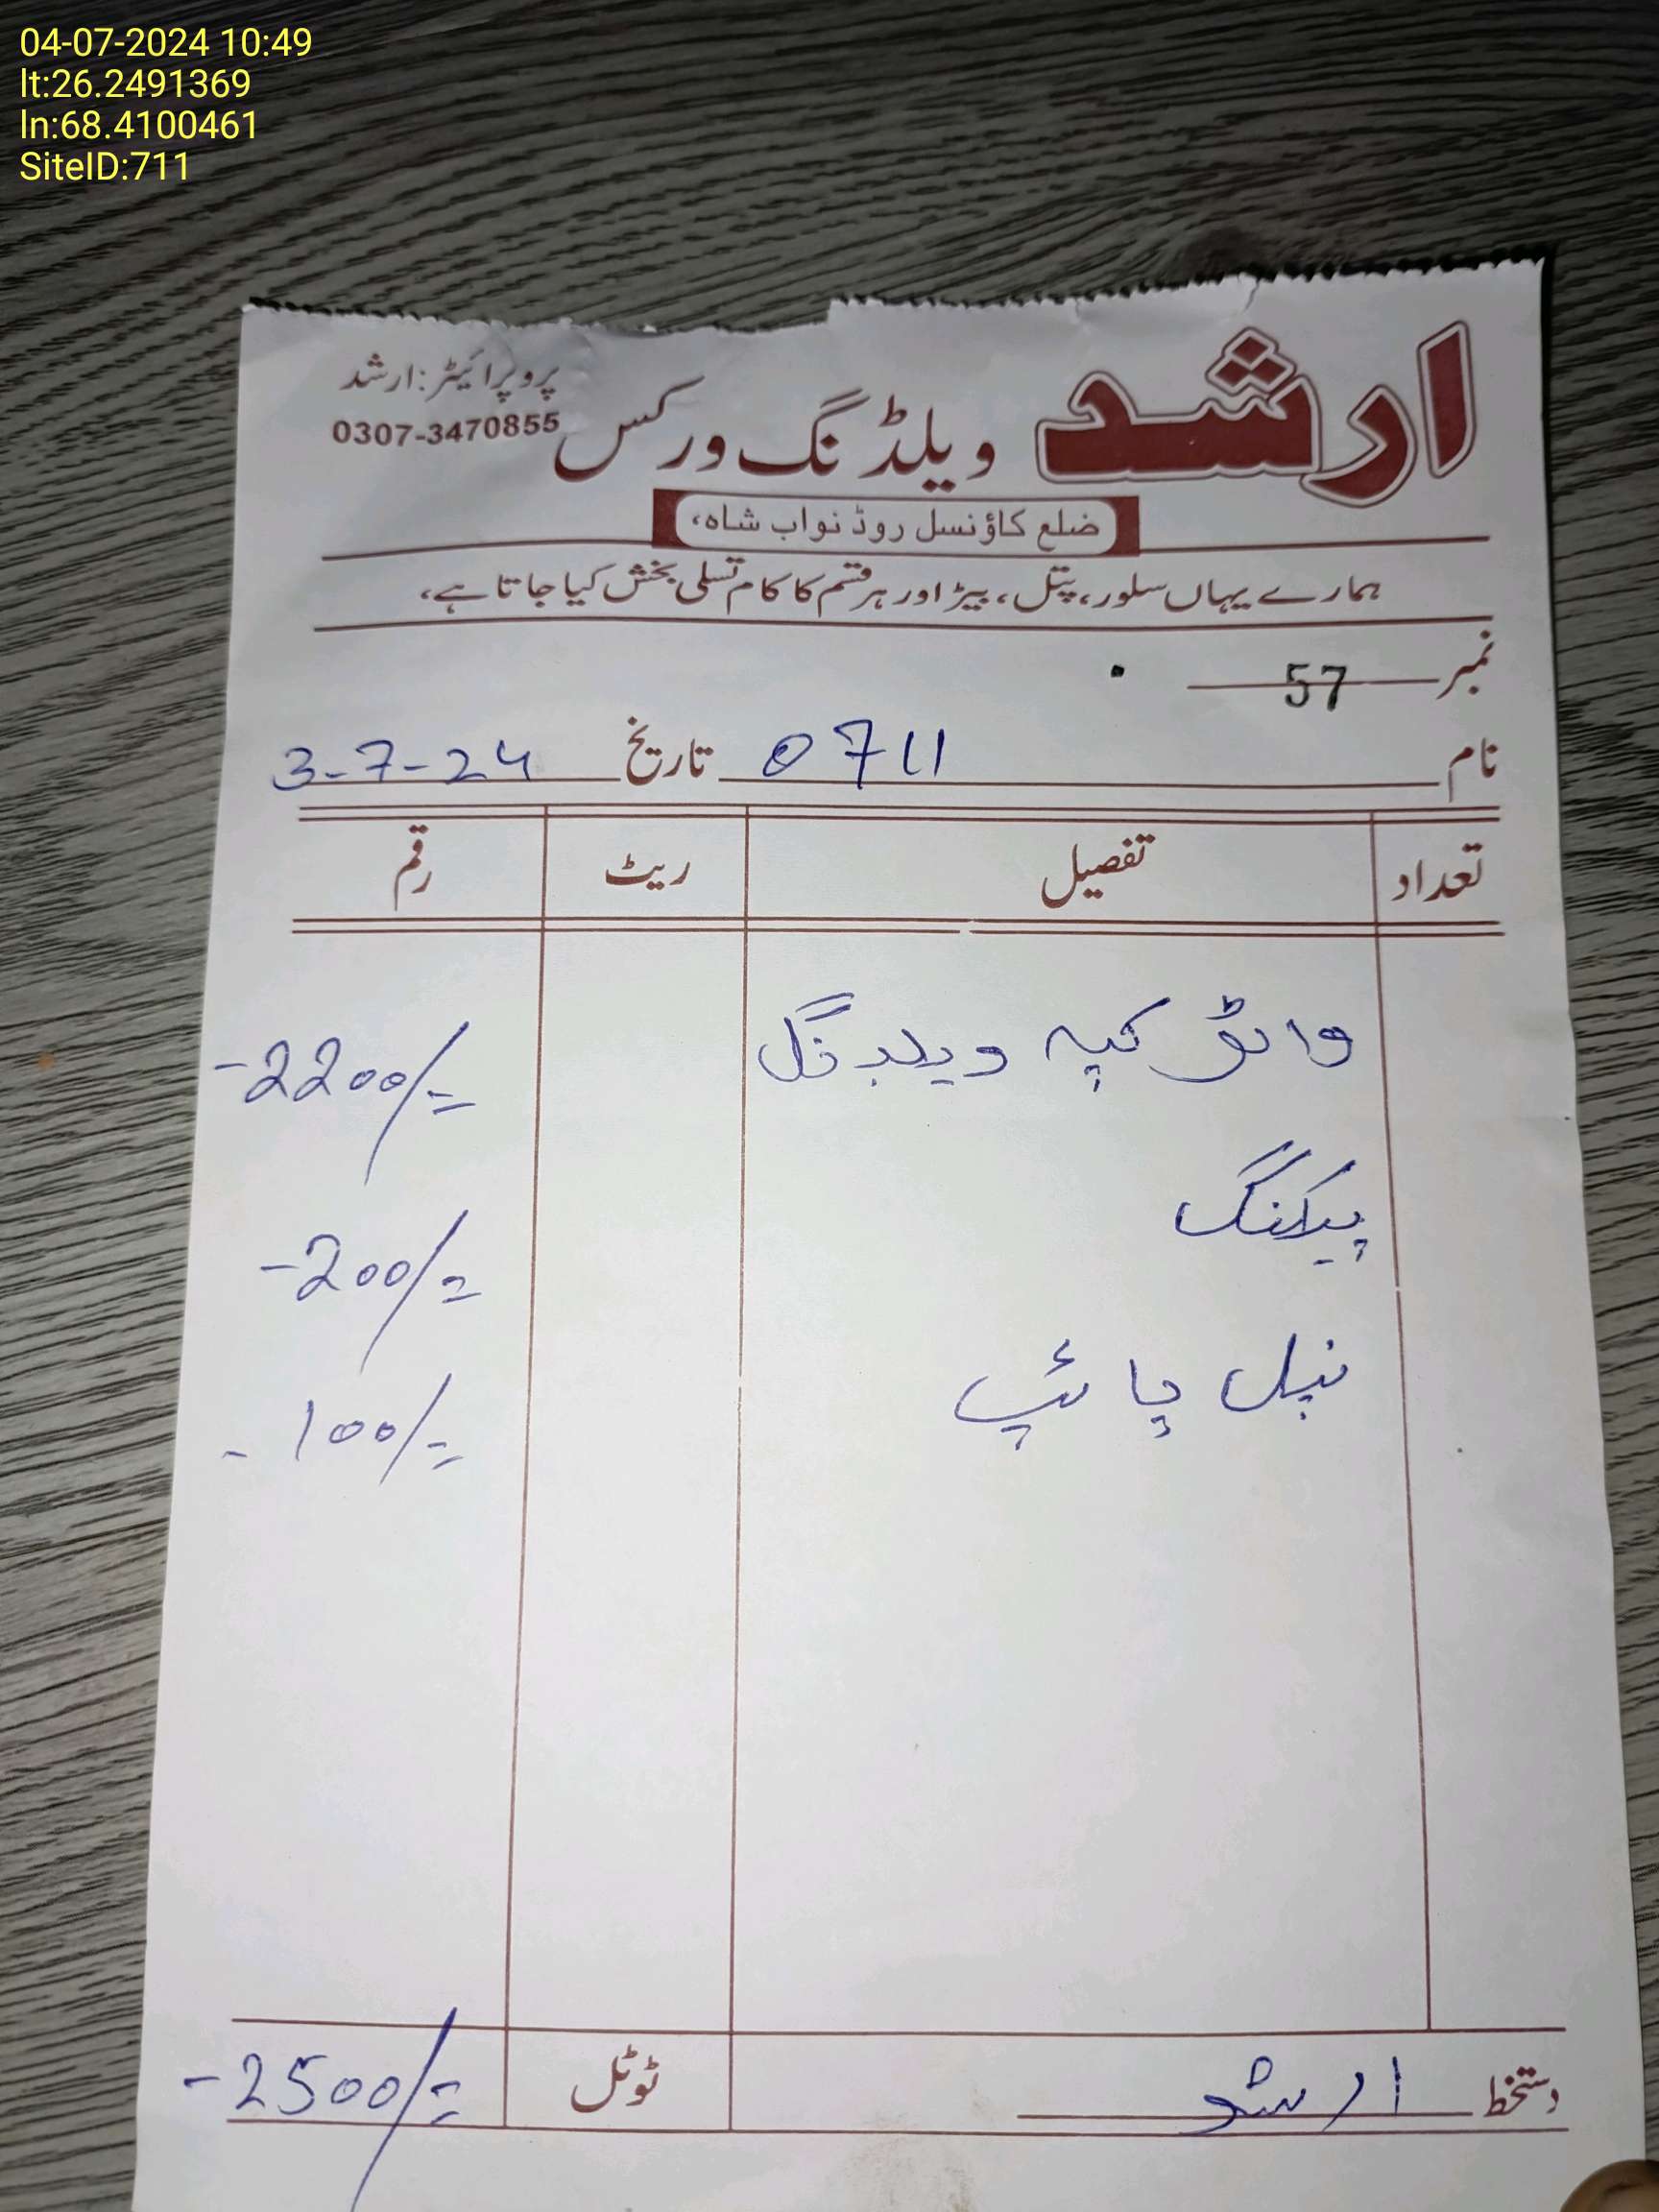 04-07-2024 10:49
lt:26.2491369
ln:68.4100461
SiteID:711
ارشد ویلڈنگ ورکس
پروپرائیٹر: ارشد
0307-3470855
ضلع کاؤنسل روڈ نواب شاہ،
ہمارے یہاں سلور، پیتل، بیڑ اور ہر قسم کا کام تسلی بخش کیا جاتا ہے،
نمبر 57
نام 0711 تاریخ 3-7-24
تعداد تفصیل ریٹ رقم
واٹر کپہ ویلڈنگ -2200/=
پیکنگ -200/=
نپل پائپ -100/=
دستخط ارشد ٹوٹل -2500/=